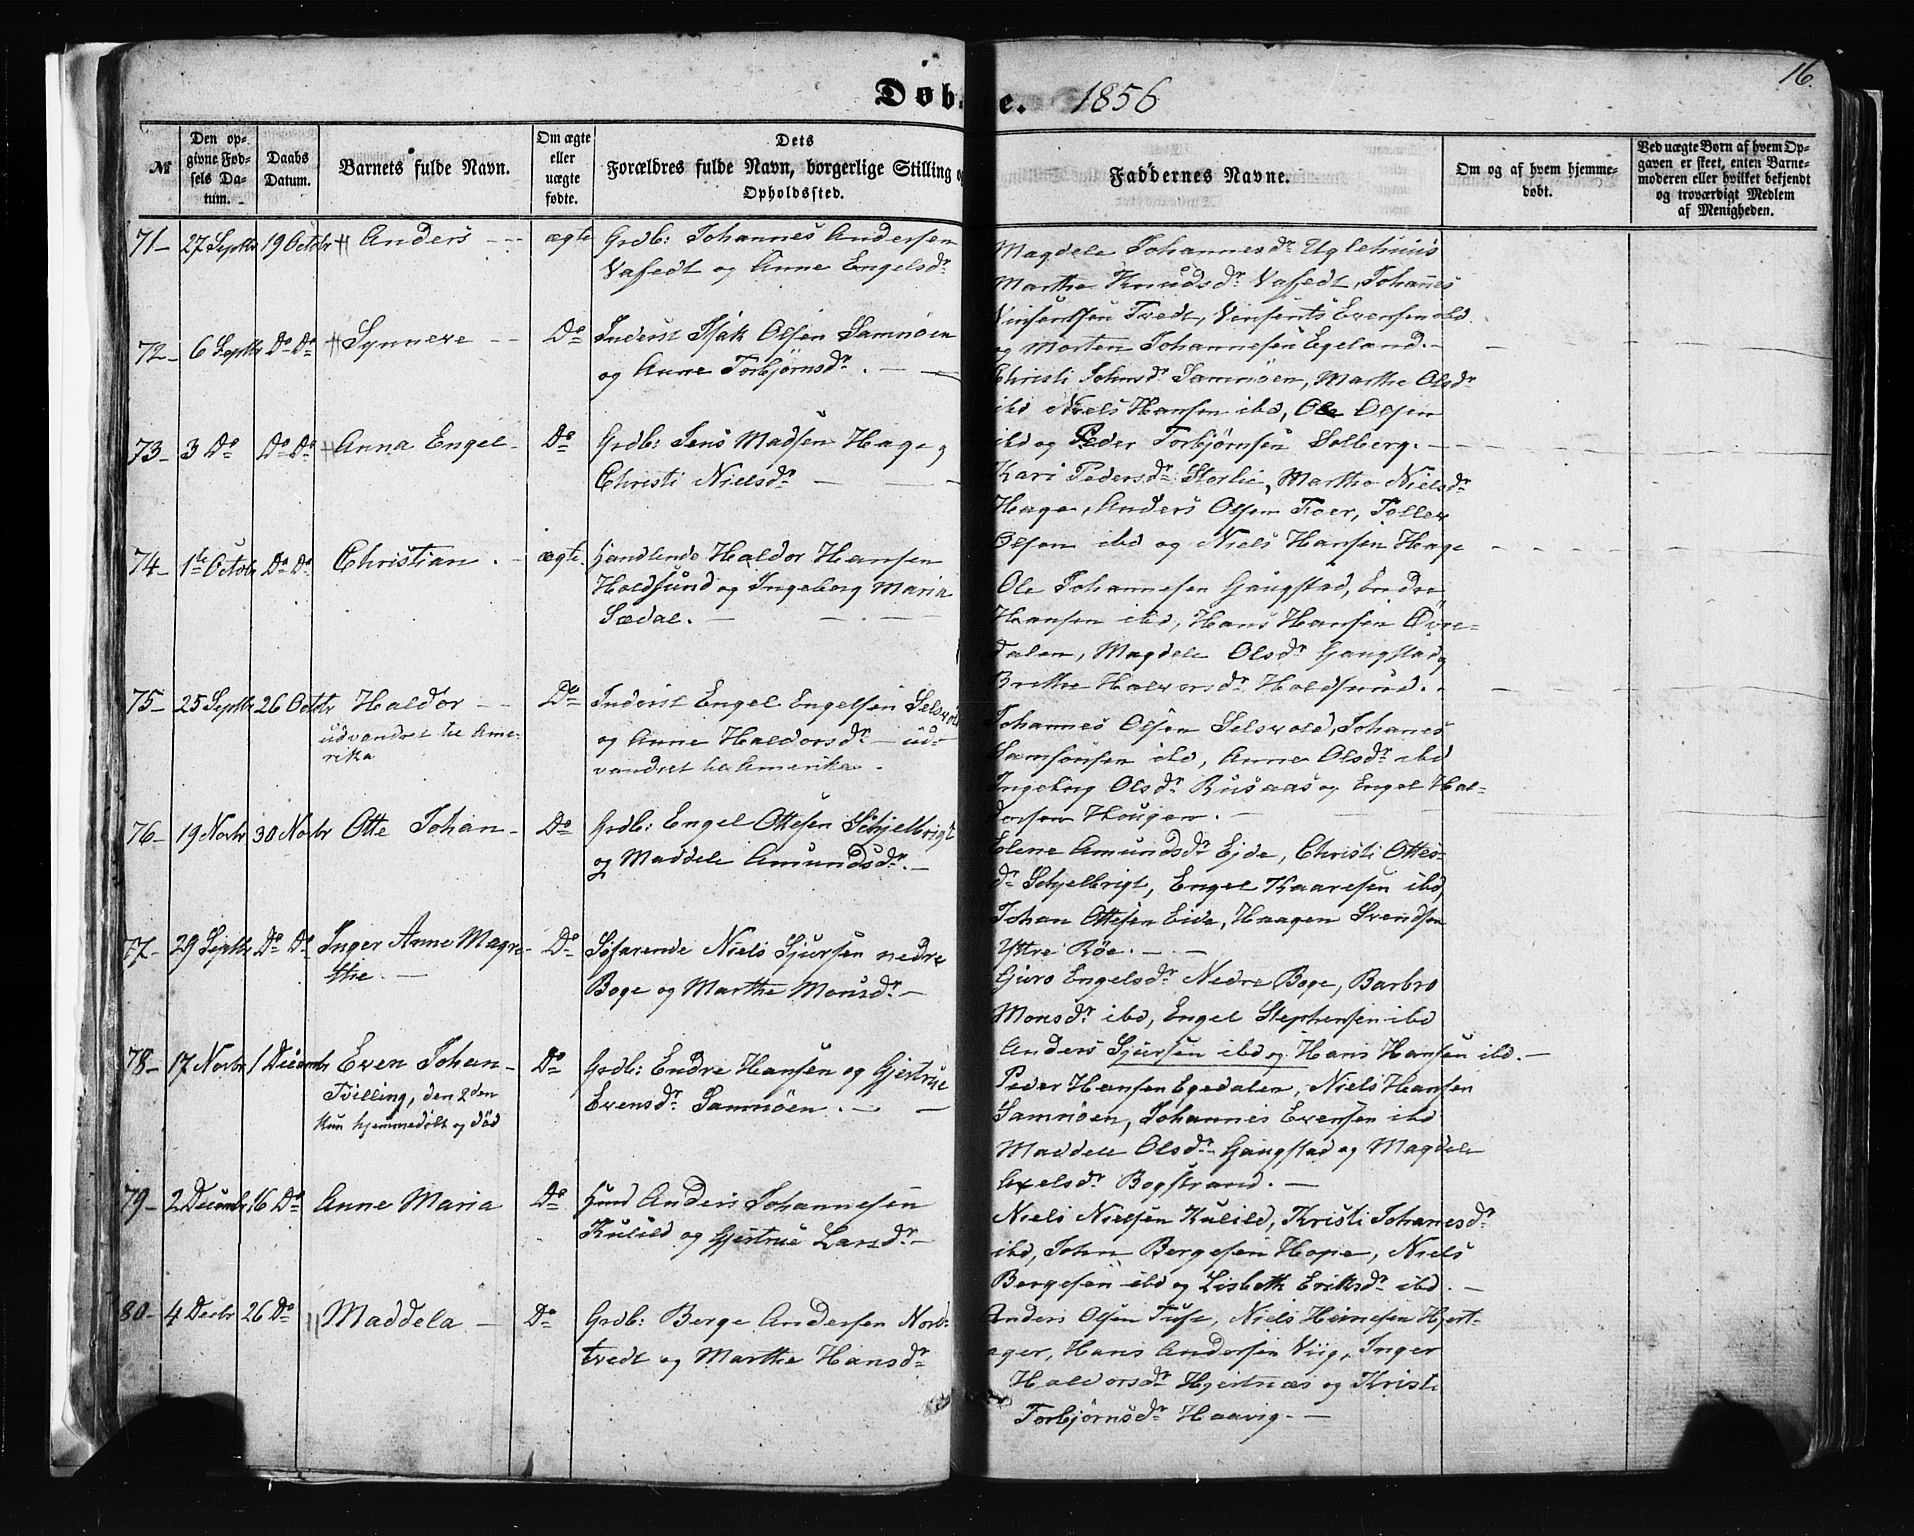 16.
Døbte. 1856
№
Den opgivne Fødsels Datum.
Daabs Datum.
Barnets fulde Navn.
Om ægte eller uægte fødte.
Dets Forældres fulde Navn, borgerlige Stilling og Opholdssted.
Faddernes Navne.
Om og af hvem hjemmedøbt.
Ved uægte Børn af hvem Opgaven er skeet, enten Barnemoderen eller hvilket bekjendt og troværdigt Medlem af Menigheden.
71 - 27 Septbr 19 Octobr Anders - - ægte Grdb: Johannes Andersen
Vassedt og Anne Engelsdr
Magdele Johannesdr Uglehuus
Marthe Knudsdr Vassedt, Johannes
Vinsentsen Tvedt, Vinsents Evensen ibd
og Morten Johannesen Egeland. -
72 - 6 Septbr Do Do Synneve - - Do Inderst Isak Olsen Samnøen
og Anne Torbjørnsdr. -
Christi Johnsdr Samnøen, Marthe Olsdr
ibd Niels Hansen ibd, Ole Olsen
ibd og Peder Torbjørnsen Solberg. -
73 - 3 Do Do Do Anna Engel - Do Grdb: Jens Madsen Hage og
Christi Nielsdr -
Kari Pedersdr Storlie, Marthe Nielsdr
Hage, Anders Olsen Toer, Tollev
Olsen ibd og Niels Hansen Hage
74 - 1te Octobr Do Do Christian. - ægte. Handlende Haldor Hansen
Holdsund og Ingeborg Maria
Sædal. -
Ole Johannesen Gaugstad, Endre
Hansen ibd, Hans Hansen Øvre-
dalen, Magdele Olsdr Gaugstad og
Brethe Halvorsdr Holdsund. -
75 - 25 Septbr 26 Octobr Haldor - - Do Inderst Engel Engelsen Selsvold
udvandret til Ame-
rika
og Anne Haldorsdr - ud-
vandret til Amerika.
Johannes Olsen Selsvold, Johanes
Samsonsen ibd, Anne Olsdr ibd
Ingebrig Olsdr Busaas og Engel Hal-
dorsen Hougen. -
76 - 19 Novbr 30 Novbr Otte Johan - Do Grdb: Engel Ottesen Schjelbrigt
og Maddele Amundsdr. -
Elene Amundsdr Ejde, Christi Ottes-
dr Schjelbrigt, Engel Kaaresen ibd,
Johan Ottesen Eide, Haagen Svendsen
Yttre Røe. - -
77 - 29 Septbr Do Do Inger Anne Magre-
the. -
Do Søfarende Niels Sjursen nedre
Boge og Marthe Monsdr. -
Guro Engelsdr Nedre Boge, Barbro
Monsdr ibd, Engel Stephensen ibd
Anders Sjursen ibd og Hans Hansen ibd. -
78 - 17 Novbr 1 Decembr Even Johan -
Tvilling, den 2den
kun hjemmedøbt og død
Do Grdb: Endre Hansen og Gjertrue
Evensdr Samnøen. - -
Peder Hansen Egedalen, Niels Hansen
Samnøen, Johannes Evensen ibd
Maddele Olsdr Gaugstad og Magdele
Axelsdr Bogstrand. -
79 - 2 Decembr 16 Do Anne Maria Do Huusmd Anders Johannesen
Kulild og Gjertrue Larsdr -
Niels Nielsen Kulild, Kristi Johanesdr
ibd, John Bergesen Hope, Niels
Bergesen ibd og Lisbeth Eriksdr ibd. -
80 - 4 Decbr 26 Do Maddela - Do Grdb: Berge Andersen Nord-
tvedt og Marthe Hansdr
Anders Olsen Tuft, Niels Heinesen Hjert-
ager, Hans Andersen Viig, Inger
Haldorsdr Hjertnæs og Kristi
Torbjørnsdr Haavig. -